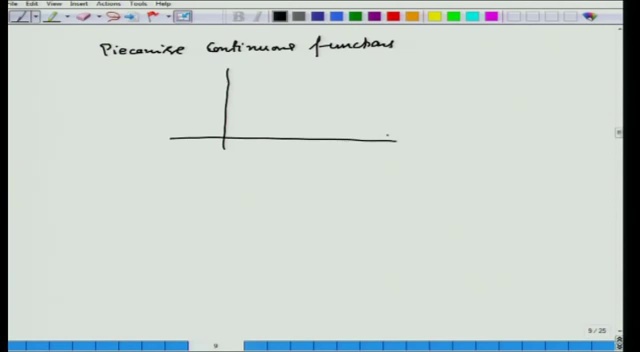 File Edit View Insert Actions Tools Help
Piecewise Continuous functions
9 / 25
9